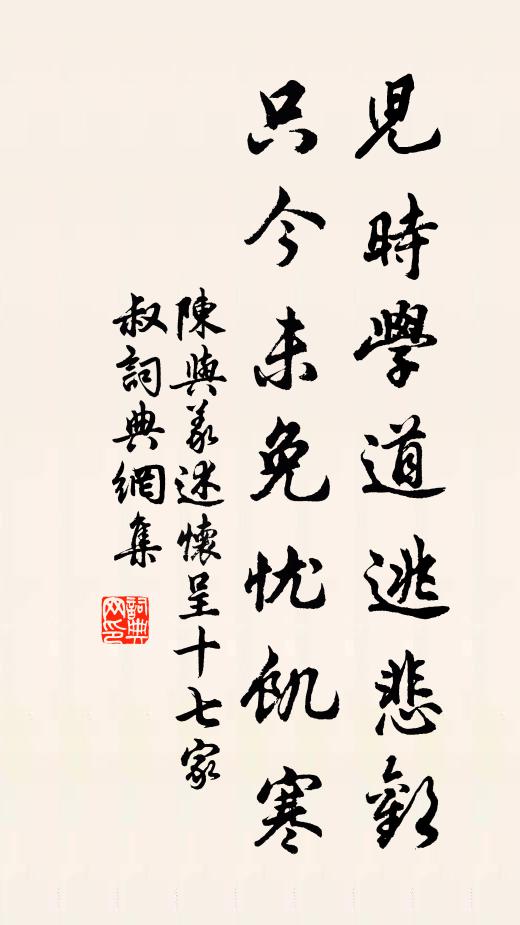 兒時學道逃悲歡
只今未免忧飢寒
陳與義述懷呈十七家
叔詞典網集
詞典网印